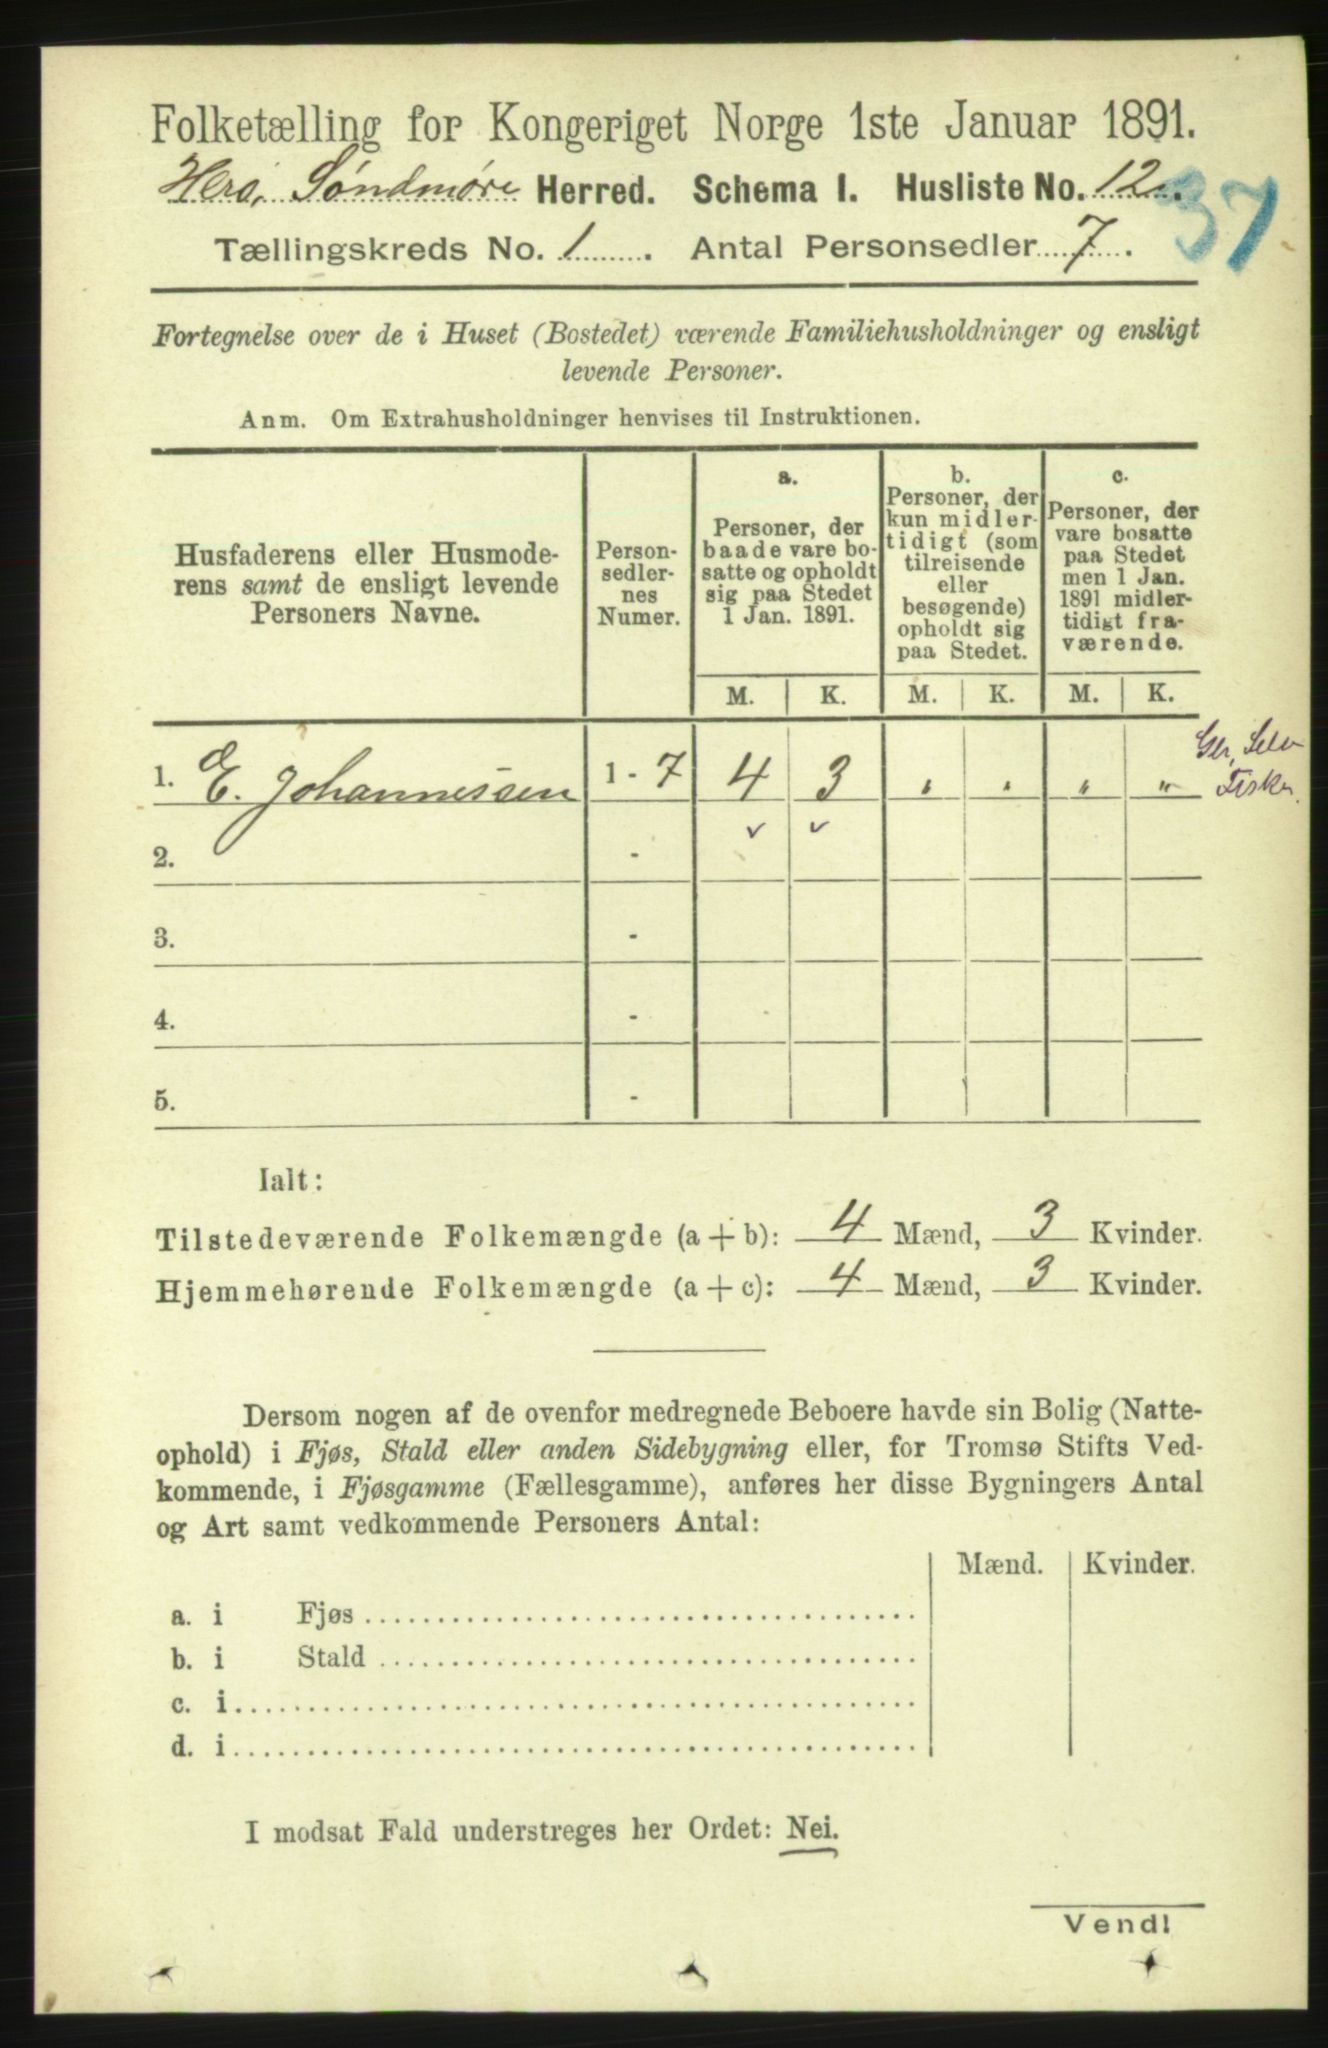 Folketælling for Kongeriget Norge 1ste Januar 1891.
Herø, Søndmøre Herred. Schema I. Husliste No. 12.
37
Tællingskreds No. 1. Antal Personsedler 7.
Fortegnelse over de i Huset (Bostedet) værende Familiehusholdninger og ensligt
levende Personer.
Anm. Om Extrahusholdninger henvises til Instruktionen.
Husfaderens eller Husmode-
rens samt de ensligt levende
Personers Navne.
Person-
sedler-
nes
Numer.
a.
Personer, der
baade vare bo-
satte og opholdt
sig paa Stedet
1 Jan. 1891.
b.
Personer, der
kun midler-
tidigt (som
tilreisende
eller
besøgende)
opholdt sig
paa Stedet.
c.
Personer, der
vare bosatte
paa Stedet
men 1 Jan.
1891 midler-
tidigt fra-
værende.
M. K. M. K. M. K.
1. E. Johannessen 1 - 7 4 3 " " " "
Fisker
2. - v v
3. -
4. -
5. -
Ialt:
Tilstedeværende Folkemængde (a + b): 4 Mænd, 3 Kvinder.
Hjemmehørende Folkemængde (a + c): 4 Mænd, 3 Kvinder.
Dersom nogen af de ovenfor medregnede Beboere havde sin Bolig (Natte-
ophold) i Fjøs, Stald eller anden Sidebygning eller, for Tromsø Stifts Ved-
kommende, i Fjøsgamme (Fællesgamme), anføres her disse Bygningers Antal
og Art samt vedkommende Personers Antal:
Mænd. Kvinder.
a. i Fjøs
b. i Stald
c. i
d. i
I modsat Fald understreges her Ordet: Nei.
Vend!